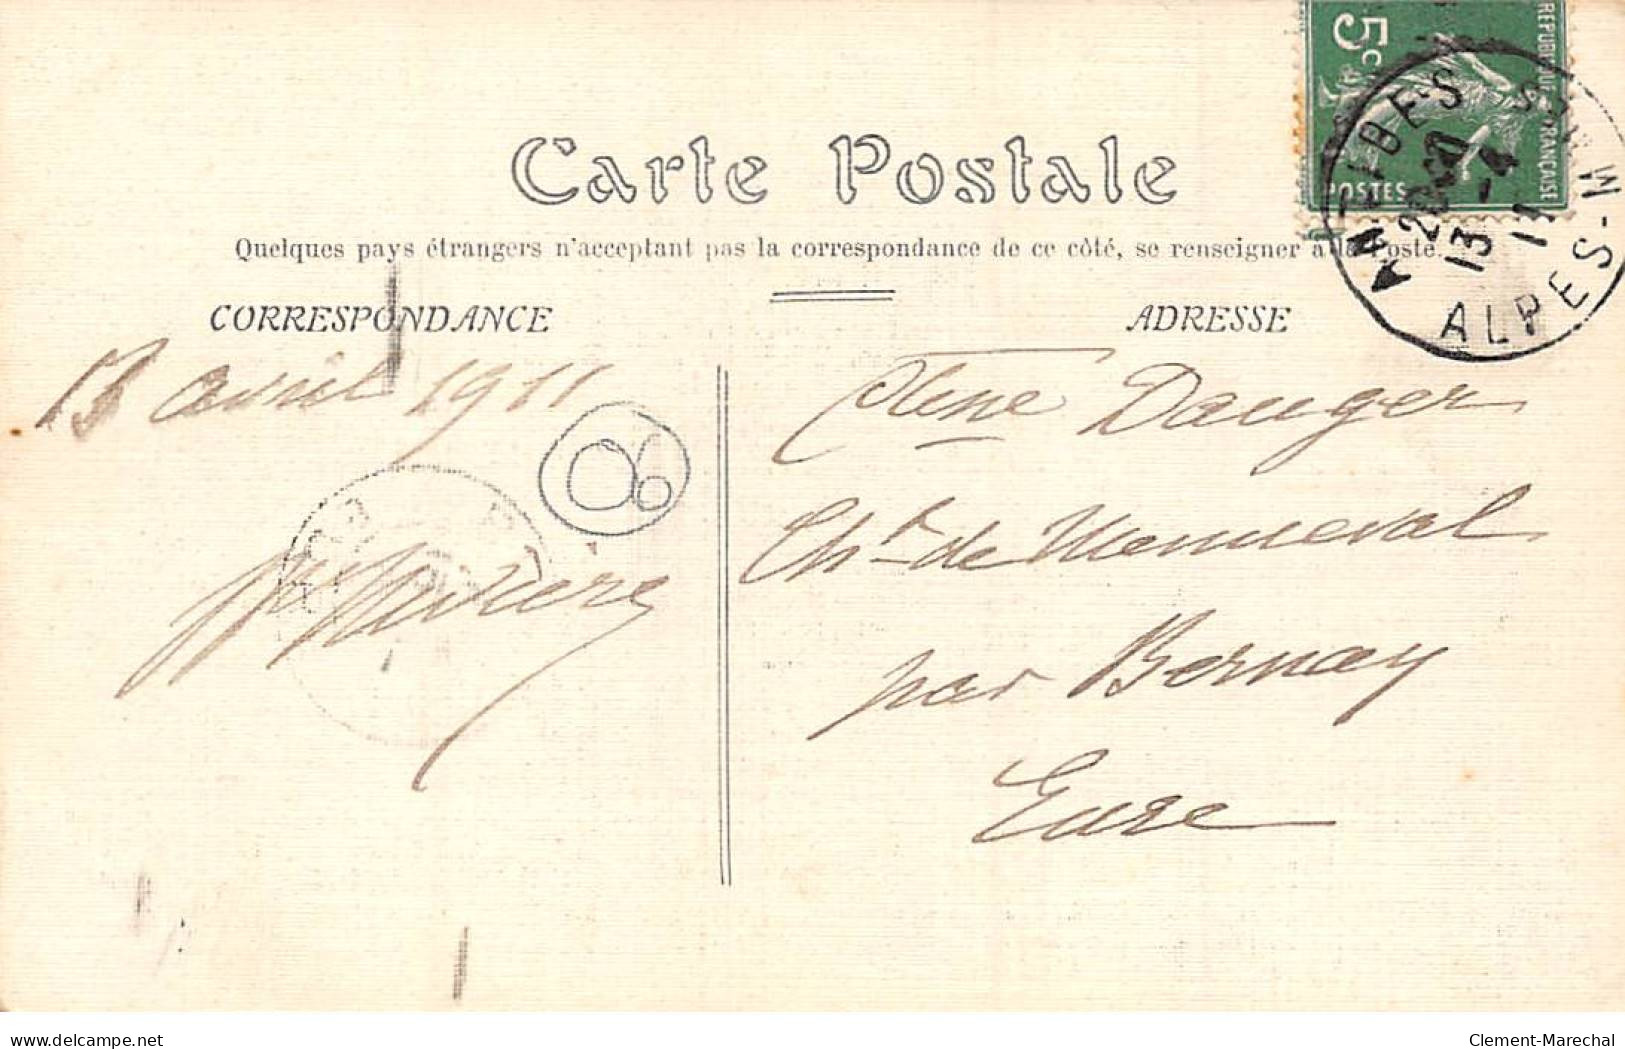 5c
REPUBLIQUE FRANÇAISE
POSTES
ANTIBES
20
13 - 4
11
ALPES-M
Carte Postale
Quelques pays étrangers n'acceptant pas la correspondance de ce côté, se renseigner à la Poste.
CORRESPONDANCE
13 avril 1911
06
ADRESSE
Mme Dauger
Cht de Menneval
par Bernay
Eure
delcampe.net
Clement-Marechal